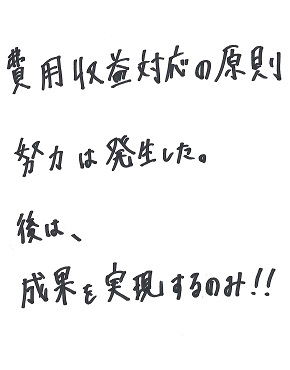 費用収益対応の原則
努力は発生した。
後は、
成果を実現するのみ!!